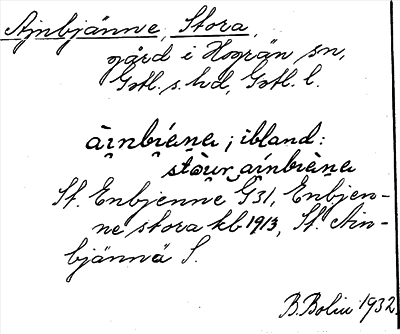 Ajnbjänne, Stora,
gård i Hogrän sn,
Gotl. s. hd, Gotl. l.
àinbiena; ibland:
stòur ainbièna
St. Enbjenne G31, Enbjen-
ne stora kb 1913, St. Ain-
bjännä S.
B. Bolin 1932.